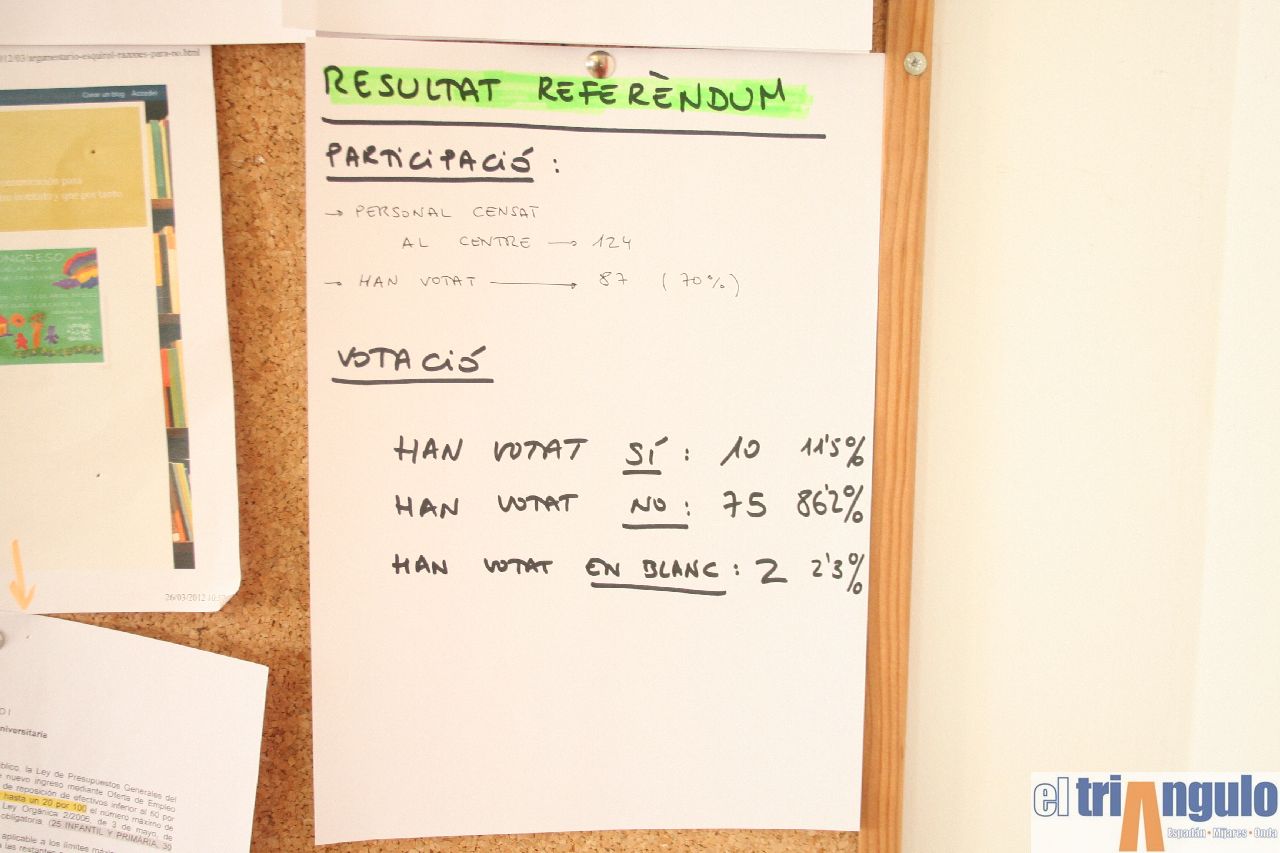 012/03/argumentario-esquirol-razones-para-no.html
Crear un blog Acceder
comunicación para
tro instituto y que por tanto
ONGRESO
26/03/2012
RESULTAT REFERÈNDUM
PARTICIPACIÓ :
→ PERSONAL CENSAT
AL CENTRE → 124
→ HAN VOTAT → 87 (70%)
VOTACIÓ
HAN VOTAT SÍ : 10 11'5%
HAN VOTAT NO : 75 86'2%
HAN VOTAT EN BLANC : 2 2'3%
niversitaria
blico, la Ley de Presupuestos Generales del
nuevo ingreso mediante Oferta de Empleo
de reposición de efectivos inferior al 60 por
hasta un 20 por 100 el número máximo de
Ley Orgánica 2/2006, de 3 de mayo, de
obligatoria. (25 INFANTIL Y PRIMARIA, 30
aplicable a los límites
las restantes
el triangulo
Espadán • Mijares • Onda